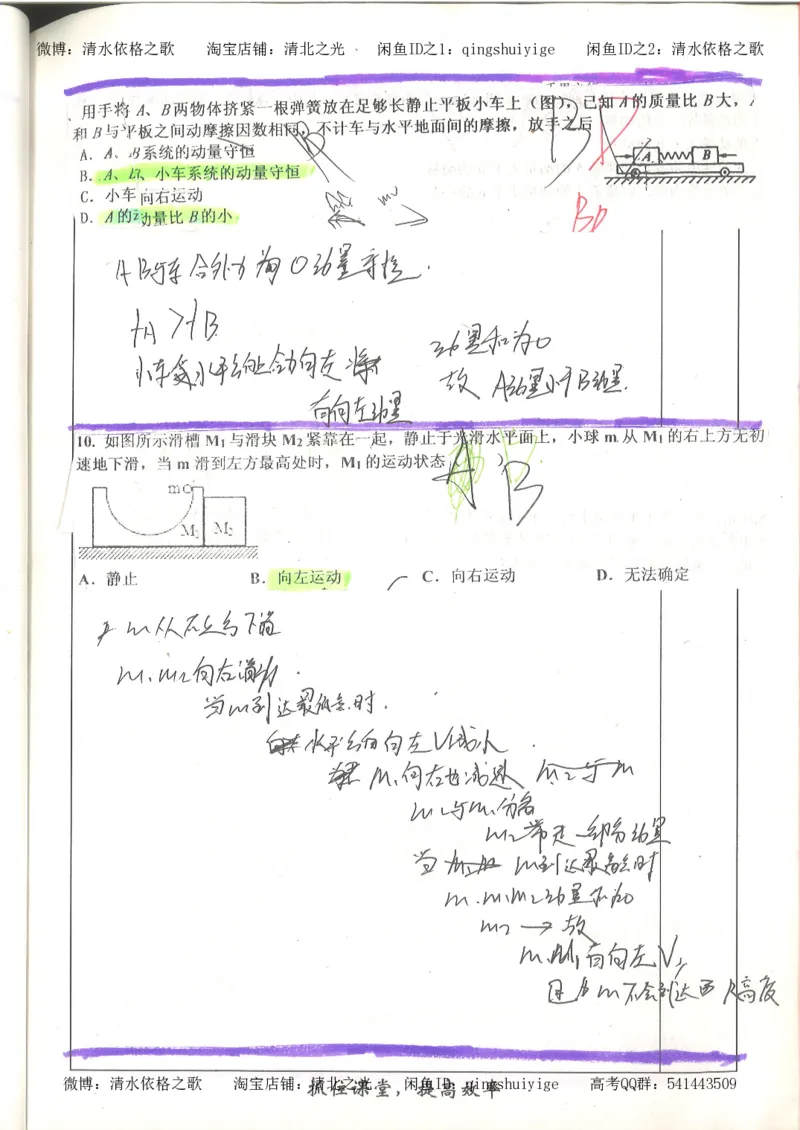 微博：清水依格之歌 淘宝店铺：清北之光 闲鱼ID之1：qingshuiyige 闲鱼ID之2：清水依格之歌
、用手将 A、B两物体挤紧一根弹簧放在足够长静止平板小车上（图），已知A的质量比 B大，A
和 B与平板之间动摩擦因数相同，不计车与水平地面间的摩擦，放手之后
A．A、B系统的动量守恒
B．A、B、小车系统的动量守恒
C．小车向右运动
D．A的动量比 B的小
A B
BD
AB与车合外力为0动量守恒.
fA>fB
动量和为0
故 A动量小于B动量.
有向左动量
10. 如图所示滑槽 M1与滑块 M2紧靠在一起，静止于光滑水平面上，小球 m 从 M1的右上方无初
速地下滑，当 m 滑到左方最高处时，M1的运动状态（ ）
A B
m
M1 M2
A．静止 B．向左运动 C．向右运动 D．无法确定
m从右上方下滑
m1m2向右滑动.
当m到达最低点时.
m1向右也减速 m2与m
m2与m1分离
m2带走一部分动量
当 m到达最高点时
m.m1m2动量和为0
m2 → 故
m.M1有向左V
且m不会到达西R高度
微博：清水依格之歌 淘宝店铺：清北之光 闲鱼ID：qingshuiyige 高考QQ群：541443509
抓住课堂，提高效率